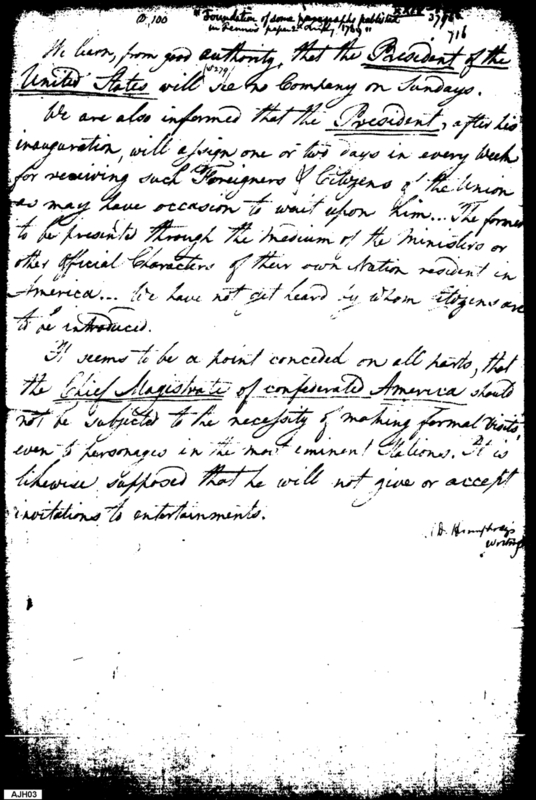 D. 100
"Foundation of some paragraphs published
in Fenno's paper 1789"
716
We learn, from good authority, that the President of the
United States will see no Company on Sundays.
We are also informed that the President, after his
inauguration, will assign one or two days in every Week
for receiving such Foreigners & Citizens of the Union
as may have occasion to wait upon him... The former
to be presented through the medium of the Ministers or
other Official Characters of their own Nation resident in
America... We have not yet heard by whom Citizens are
to be introduced.
It seems to be a point conceded on all parts, that
the Chief Magistrate of confederated America should
not be subjected to the necessity of making formal visits
even to personages in the most eminent Stations. It is
likewise supposed that he will not give or accept
invitations to entertainments.
D. Humphreys
writing
AJH03